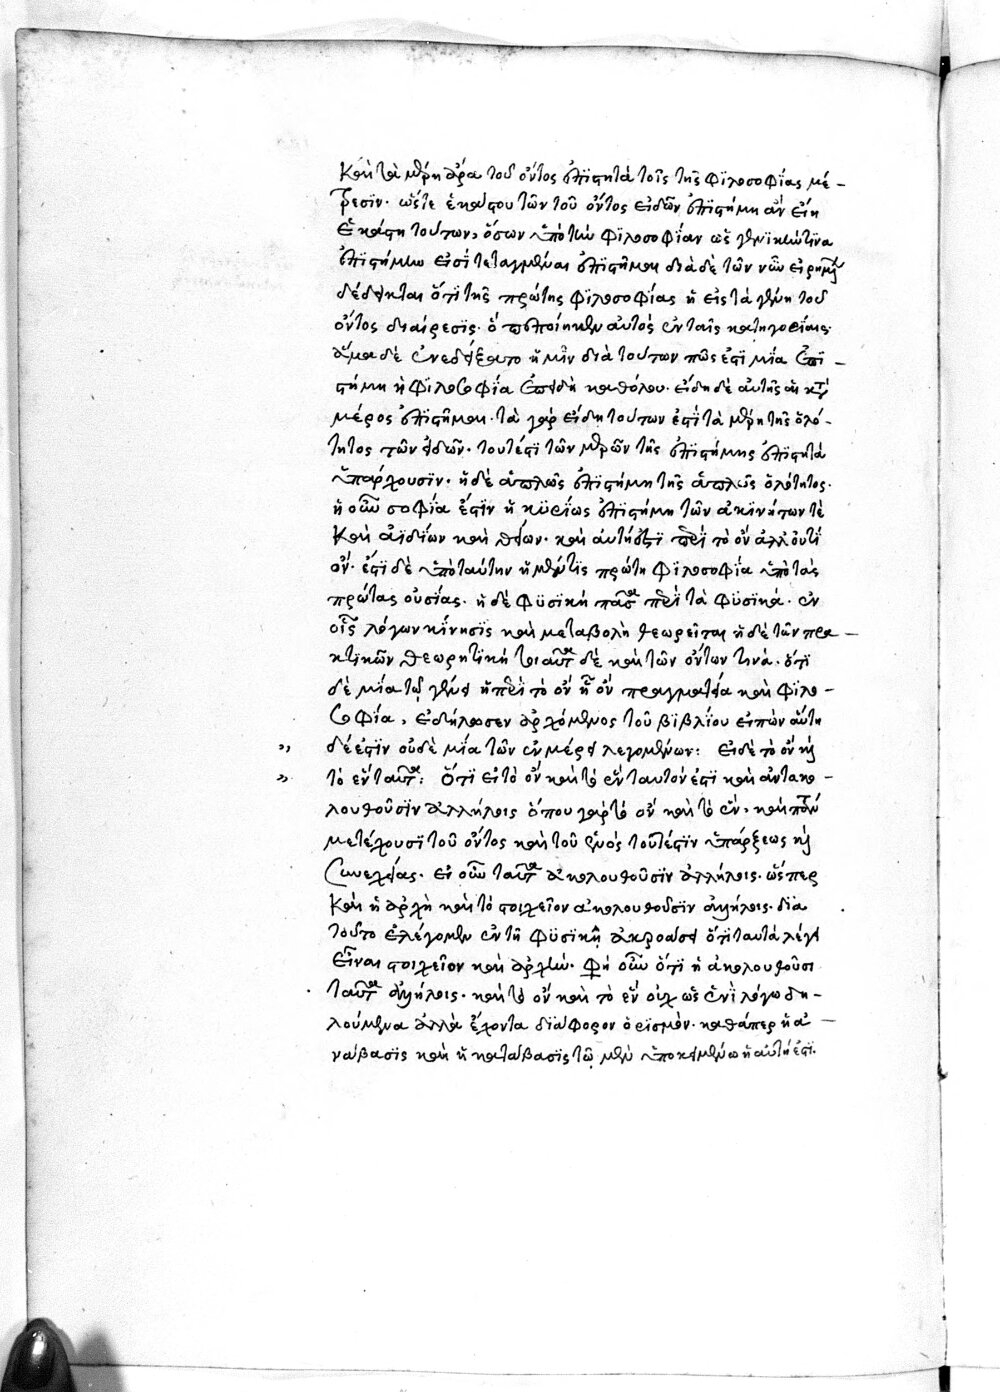 Καὶ τὰ μέρη ἄρα τοῦ ὄντος ἐπιστητὰ τοῖς τῆς φϊλοσοφΐας μέ-
ρεσϊν. ὥστε ἑκάστου τῶν τοῦ ὄντος εἰδῶν ἐπιστήμη ἂν εἴη
ἑκάστη τούτων, ὅσων ὑπὸ τὴν φϊλοσοφΐαν ὡς γενϊκωτϊνα
ἐπιστήμην εἰσὶ τεταγμέναι ἐπιστῆμαι διὰ δὲ τῶν νῦν εἰρημένων
δέδεικται ὅτι τῆς πρώτης φϊλοσοφΐας ἡ εἰς τὰ γένη τοῦ
ὄντος διαίρεσϊς. ὃ πεποίηκεν αὐτὸς ἐν ταῖς κατηγορίαις.
ἅμα δὲ ἐνεδείξατο ἡμῖν διὰ τούτων πῶς ἐστὶ μία ἐπϊ-
στήμη ἡ φϊλοσοφΐα ἐπειδὴ καθόλου. εἴδη δὲ αὐτῆς αἱ κατὰ
μέρος ἐπιστῆμαι. τὰ γὰρ εἴδη τούτων ἐστὶ τὰ μέρη τῆς ὁλό-
τητος τῶν εἰδῶν. τουτέστι τῶν μερῶν τῆς ἐπιστήμης ἐπιστητὰ
ὑπάρχουσϊν. ἡ δὲ ἁπλῶς ἐπιστήμη τῆς ἁπλῶς ὁλότητος.
ἡ οὖν σοφΐα ἐστὶν ἡ κυρίως ἐπιστήμη τῶν ἀκινήτων τὲ
Καὶ ἀϊδίων καὶ θείων. καὶ αὐτή ἐστι περὶ τὸ ὂν ἀλλ' οὐ τὶ
ὄν. ἔστι δὲ ὑπὸ ταύτην ἡ μέν τις πρώτη φϊλοσοφΐα ὑπὸ τὰς
πρώτας οὐσίας. ἡ δὲ φϋσϊκὴ πᾶσα περὶ τὰ φϋσϊκὰ. ἐν
οἷς λόγων κίνησϊς καὶ μεταβολὴ θεωρεῖται ἡ δὲ τῶν πρα-
κτϊκῶν θεωρητϊκὴ τοιαῦτα δὲ καὶ τῶν ὄντων τινὰ. ὅτι
δὲ μΐα τῷ γένει ἡ περὶ τὸ ὂν ᾗ ὂν πραγματεία καὶ φϊλο-
σοφΐα, ἐδήλωσεν ἀρχόμενος τοῦ βϊβλΐου εἰπὼν αὕτη
δέ ἐστϊν οὐδὲ μΐα τῶν ἐν μέρει λεγομένων: Εἰ δὲ τὸ ὂν καὶ
τὸ ἓν ταὐτὸν: Ὅτϊ εἰ τὸ ὂν καὶ τὸ ἓν ταυτόν ἐστι καὶ ἀντακο-
λουθοῦσϊν ἀλλήλοις ὅπου γὰρ τὸ ὂν καὶ τὸ ἓν, καὶ πάντα
μετέχουσϊ τοῦ ὄντος καὶ τοῦ ἑνὸς τουτέστϊν ὑπάρξεως καὶ
συνεχείας. εἰ οὖν ταῦτα ἀκολουθοῦσϊν ἀλλήλοις. ὥσπερ
Καὶ ἡ ἀρχὴ καὶ τὸ στοιχεῖον ἀκολουθοῦσϊν ἀλλήλοις. διὰ
τοῦτο ἐλέγομεν ἐν τῇ φϋσϊκῇ ἀκροάσει ὅτι ταυτὰ λέγει
εἶναι στοιχεῖον καὶ ἀρχὴν. φησὶ οὖν ὅτι ἡ ἀκολουθοῦσι
ταῦτα ἀλλήλοις. καὶ τὸ ὂν καὶ τὸ ἓν οὐχ ὡς ἑνὶ λόγω δη-
λούμενα ἀλλὰ ἔχοντα διάφορον ὁρϊσμὸν. καθάπερ ἡ ἀ-
νάβασϊς καὶ ἡ κατάβασϊς τῷ μὲν ὑποκειμένω ἡ αὐτή ἐστι.